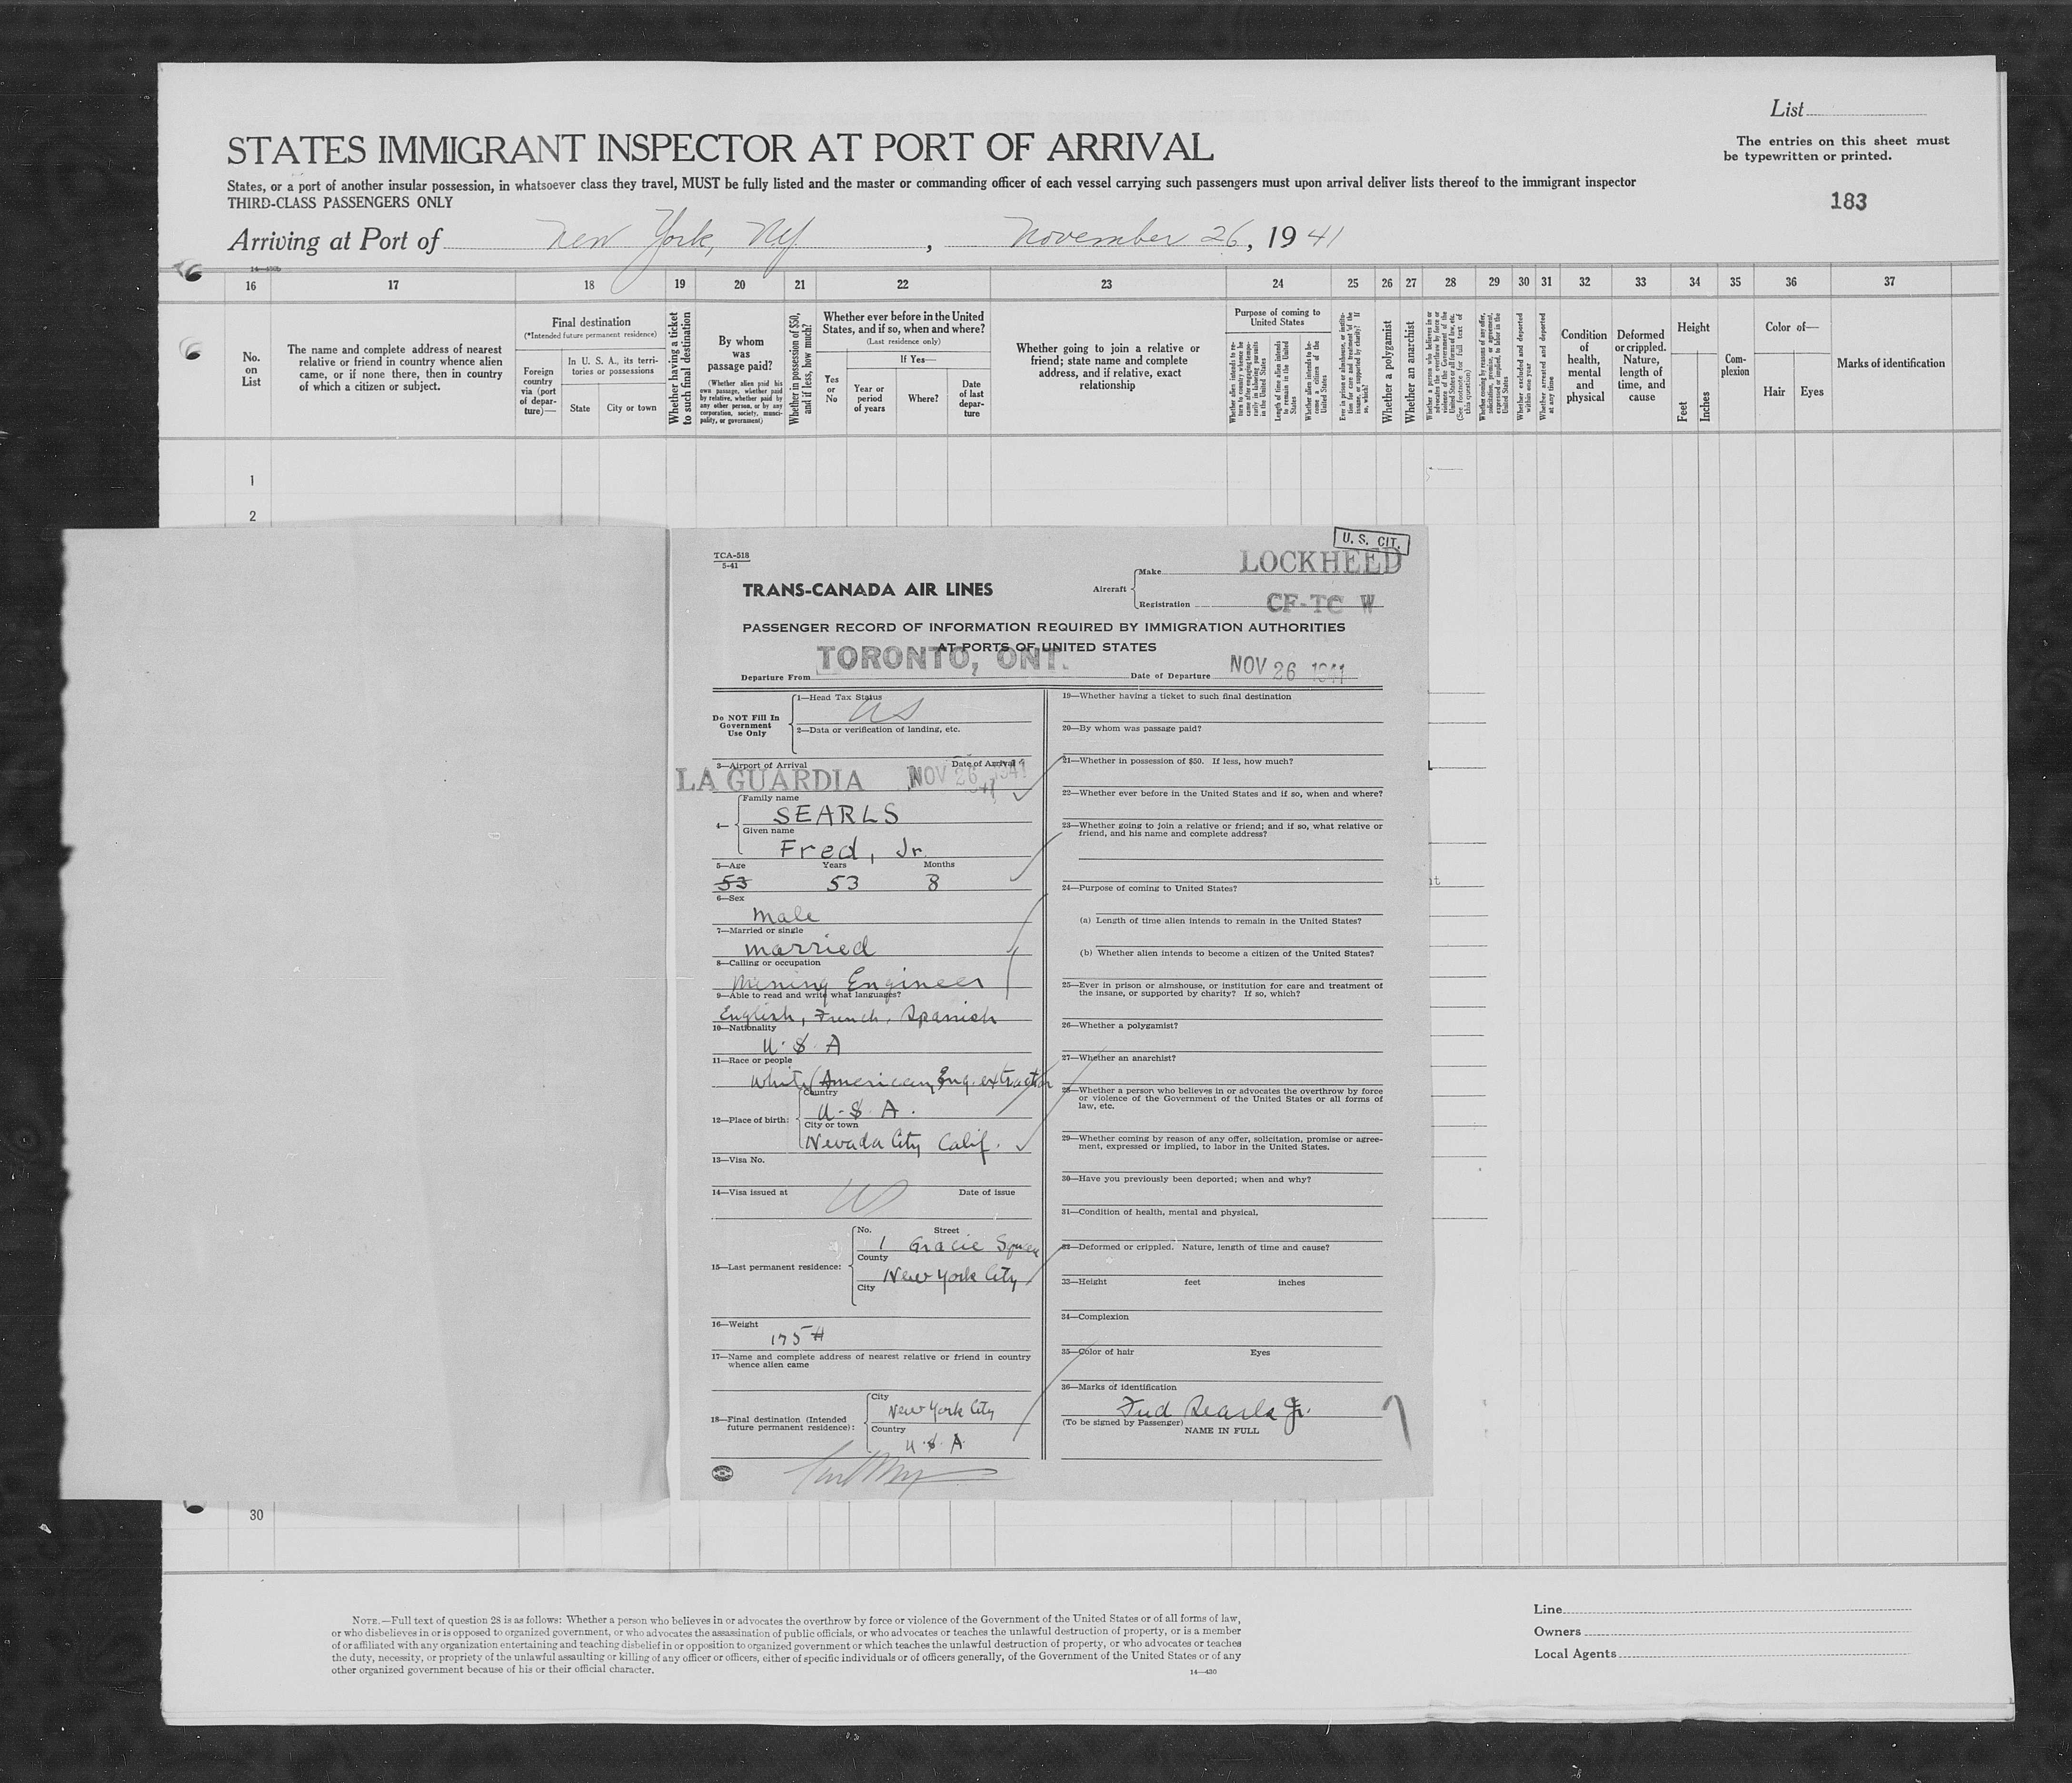 List
STATES IMMIGRANT INSPECTOR AT PORT OF ARRIVAL
The entries on this sheet must
be typewritten or printed.
States, or a port of another insular possession, in whatsoever class they travel, MUST be fully listed and the master or commanding officer of each vessel carrying such passengers must upon arrival deliver lists thereof to the immigrant inspector
THIRD-CLASS PASSENGERS ONLY
183
Arriving at Port of New York, NY, November 26, 1941
16 17 18 19 20 21 22 23 24 25 26 27 28 29 30 31 32 33 34 35 36 37
No.
on
List
The name and complete address of nearest
relative or friend in country whence alien
came, or if none there, then in country
of which a citizen or subject.
Final destination
(*Intended future permanent residence)
Foreign
country
via (port
of depar-
ture)—
In U. S. A., its terri-
tories or possessions
State
City or town
Whether having a ticket
to such final destination
By whom
was
passage paid?
(Whether alien paid his
own passage, whether paid
by relative, whether paid by
any other person, or by any
corporation, society, munici-
pality, or government)
Whether in possession of $50,
and if less, how much?
Whether ever before in the United
States, and if so, when and where?
(Last residence only)
If Yes—
Yes
or
No
Year or
period
of years
Where?
Date
of last
depar-
ture
Whether going to join a relative or
friend; state name and complete
address, and if relative, exact
relationship
Purpose of coming to
United States
Whether alien intends to re-
turn to country whence he
came after engaging tempo-
rarily in laboring pursuits
in the United States
Length of time alien intends
to remain in the United
States
Whether alien intends to be-
come a citizen of the
United States
Ever in prison or almshouse, or institu-
tion for care and treatment of the
insane, or supported by charity? If
so, which?
Whether a polygamist
Whether an anarchist
Whether a person who believes in or
advocates the overthrow by force or
violence of the Government of the
United States or all forms of law, etc.
(See footnote for full text of
this question)
Whether coming by reasons of any offer,
solicitation, promise, or agreement,
expressed or implied, to labor in the
United States
Whether excluded and deported
within one year
Whether arrested and deported
at any time
Condition
of
health,
mental
and
physical
Deformed
or crippled.
Nature,
length of
time, and
cause
Height
Feet
Inches
Com-
plexion
Color of—
Hair
Eyes
Marks of identification
1
2
U. S. CIT.
TCA-518
5-41
TRANS-CANADA AIR LINES
Aircraft
Make LOCKHEED
Registration CF-TC W
PASSENGER RECORD OF INFORMATION REQUIRED BY IMMIGRATION AUTHORITIES
AT PORTS OF UNITED STATES
Departure From TORONTO, ONT. Date of Departure NOV 26 1941
Do NOT Fill In
Government
Use Only
1—Head Tax Status
US
2—Data or verification of landing, etc.
3—Airport of Arrival Date of Arrival
LA GUARDIA NOV 26 1941
4—
Family name
SEARLS
Given name
Fred, Jr.
5—Age Years Months
53 53 8
6—Sex
male
7—Married or single
married
8—Calling or occupation
Mining Engineer
9—Able to read and write what languages?
English, French, Spanish
10—Nationality
U. S. A
11—Race or people
White (American, Eng. extraction
12—Place of birth:
Country
U. S. A.
City or town
Nevada City Calif.
13—Visa No.
14—Visa issued at Date of issue
15—Last permanent residence:
No. Street
1 Gracie Square
County
New York City
City
16—Weight
175#
17—Name and complete address of nearest relative or friend in country
whence alien came
18—Final destination (Intended
future permanent residence):
City
New York City
Country
U. S. A.
19—Whether having a ticket to such final destination
20—By whom was passage paid?
21—Whether in possession of $50. If less, how much?
22—Whether ever before in the United States and if so, when and where?
23—Whether going to join a relative or friend; and if so, what relative or
friend, and his name and complete address?
24—Purpose of coming to United States?
(a) Length of time alien intends to remain in the United States?
(b) Whether alien intends to become a citizen of the United States?
25—Ever in prison or almshouse, or institution for care and treatment of
the insane, or supported by charity? If so, which?
26—Whether a polygamist?
27—Whether an anarchist?
28—Whether a person who believes in or advocates the overthrow by force
or violence of the Government of the United States or all forms of
law, etc.
29—Whether coming by reason of any offer, solicitation, promise or agree-
ment, expressed or implied, to labor in the United States.
30—Have you previously been deported; when and why?
31—Condition of health, mental and physical.
32—Deformed or crippled. Nature, length of time and cause?
33—Height feet inches
34—Complexion
35—Color of hair Eyes
36—Marks of identification
Fred Searls Jr.
(To be signed by Passenger)
NAME IN FULL
30
NOTE.—Full text of question 28 is as follows: Whether a person who believes in or advocates the overthrow by force or violence of the Government of the United States or of all forms of law,
or who disbelieves in or is opposed to organized government, or who advocates the assassination of public officials, or who advocates or teaches the unlawful destruction of property, or is a member
of or affiliated with any organization entertaining and teaching disbelief in or opposition to organized government or which teaches the unlawful destruction of property, or who advocates or teaches
the duty, necessity, or propriety of the unlawful assaulting or killing of any officer or officers, either of specific individuals or of officers generally, of the Government of the United States or of any
other organized government because of his or their official character.
14—430
Line
Owners
Local Agents